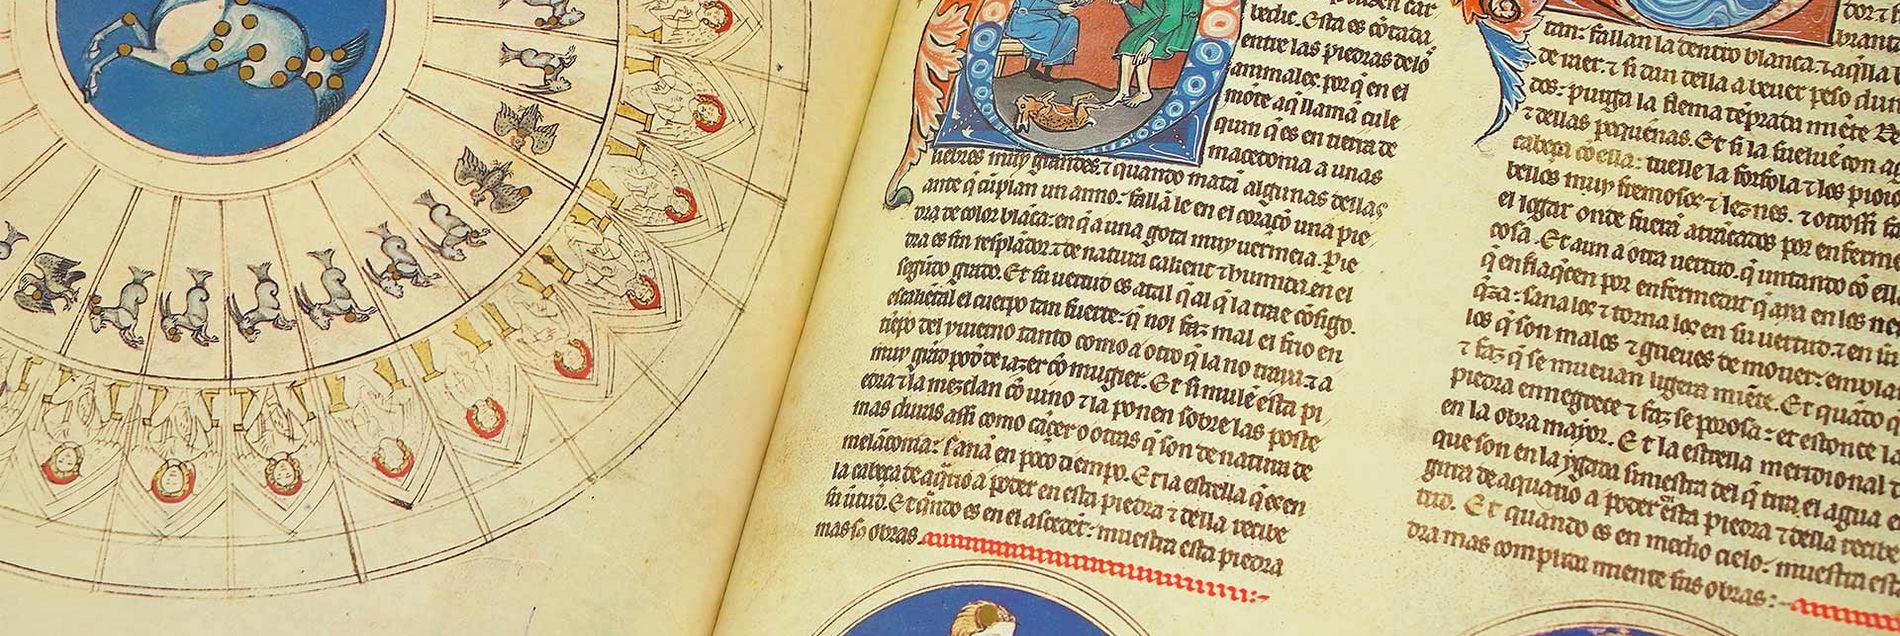 bedic. Esta es cõtada
entre las piedras delo
animales. por q̃ en el
mõte aq̃ llamã cule
quin q̃ es en tierra de
macedonia a unas
liebres muy grandes. ⁊ quando matã algunas dellas
ante q̃ cũplan un anno. fallã le en el coraçõ una pie
dra de color blãca. en q̃ a una gota muy uermeia. Pie
dra es sin resplãdor. ⁊ de natura calient ⁊ humida. en el
segũdo grado. Et su uertud es atal q̃ al q̃ la trae cõsigo.
escalẽtal el cuerpo tan fuerte. q̃ nol faz mal el frio en
tiẽpo del yuierno tanto como a otro q̃ la no traya. ⁊ a
muy grãd poder de iazer cõ mugier. Et si mulẽ esta pi
edra ⁊ la mezclan cõ uino ⁊ la ponen sobre las poste
mas duras assi como cãcer o otras q̃ son de natura de
melãconia: sanã en poco tiempo. Et la estrella q̃ es en
la cabeça de aq̃rio a poder en esta piedra ⁊ della recibe
su ũtud. Et q̃ndo es en el ascẽdẽt: muestra esta piedra
mas sus obras
tan: fallan la dentro blanca. ⁊ aq̃lla
de uier. ⁊ si dan della a beuer peso du
dos: purga la flema tẽprada miẽte
⁊ dellas pequenas. Et si la bueluẽ con
cabeça cõ ella: tuelle la forfola ⁊ los
bellos muy fremosos ⁊ leznes. ⁊ otrossi
el logar onde fuerã arrãcados por enferme
cosa. Et aun a otra uertud. q̃ untando cõ
q̃ enflaq̃cen por enfermedat q̃ aya en los
q̃za: sana los ⁊ torna los en su uertud. ⁊ en
los q̃ son malos ⁊ grieues de mouer: empla
⁊ faz q̃ se mueuan ligera miẽte. Et quãdo
piedra ennegrece ⁊ faz se porosa: et estonce
en la obra mayor. Et la estrella meridional
que son en la yjada siniestra del q̃ tira el agua
gura de aquario a poder en esta piedra ⁊ della recibe
tud. Et quando es en medio cielo: muestra
dra mas complida miente sus obras: